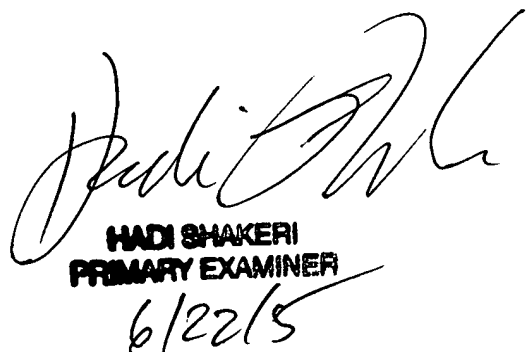 HADI SHAKERI
PRIMARY EXAMINER
6/22/5